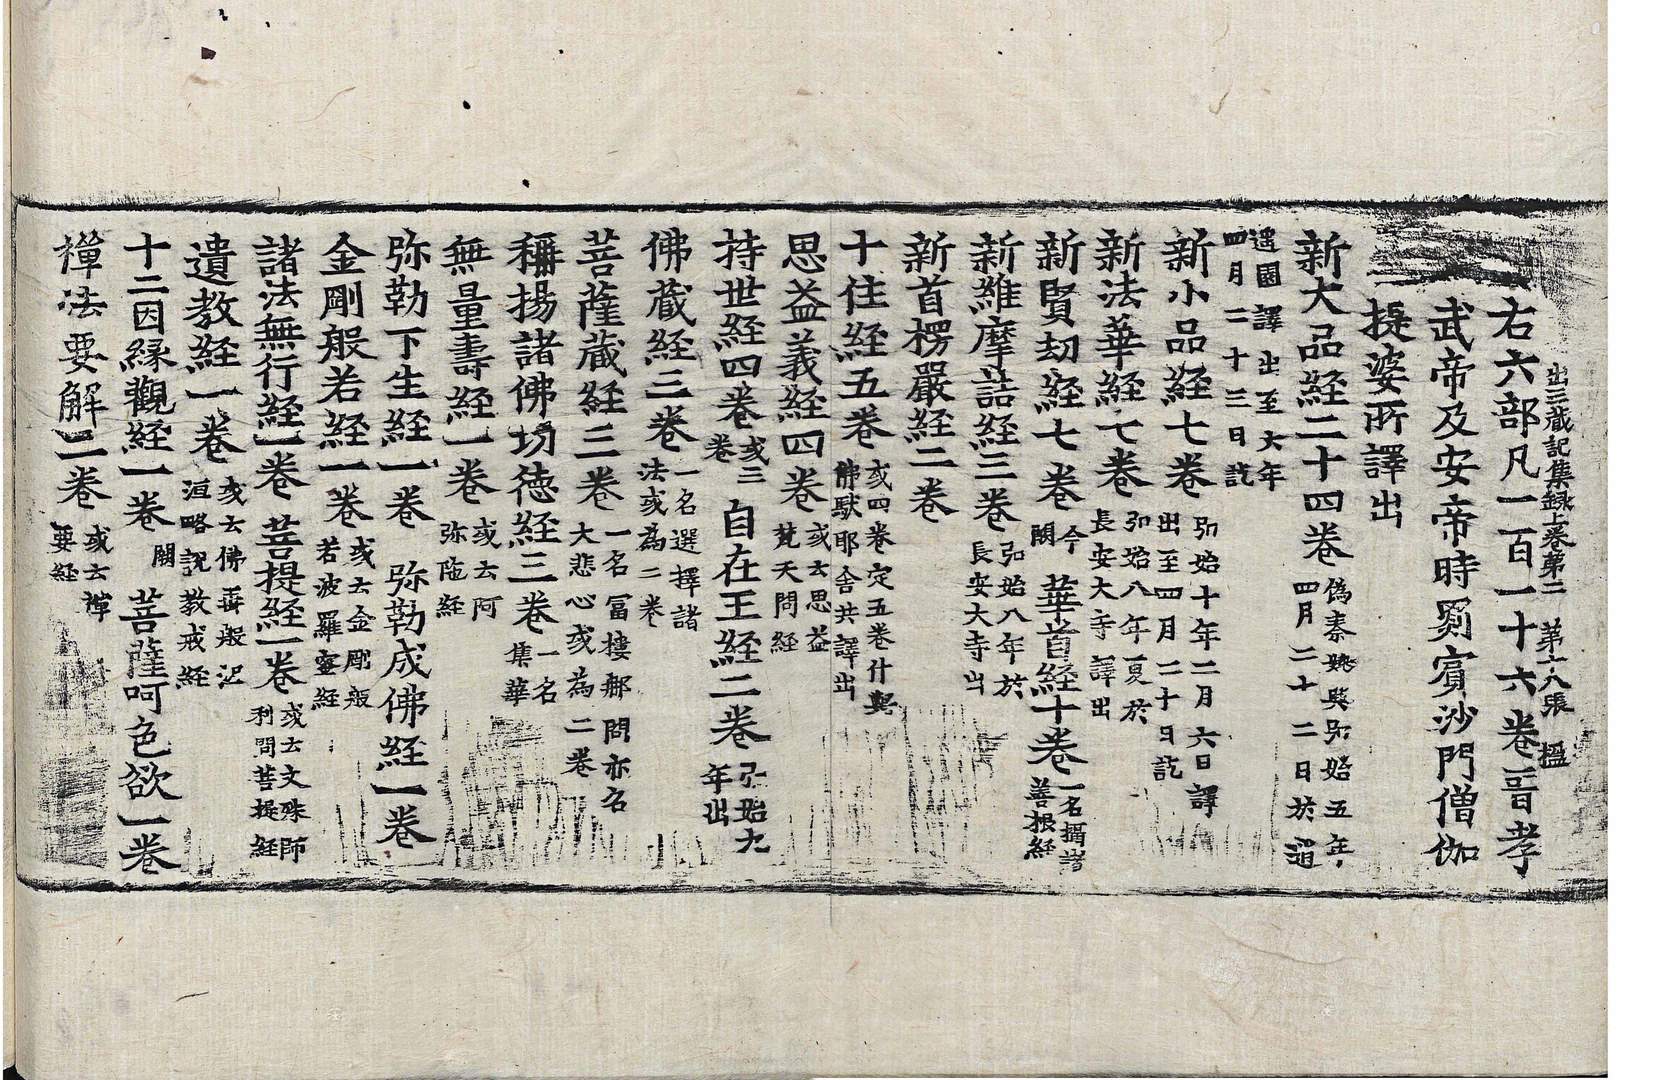 出三藏記集録上卷第二 第十八張 搵
右六部凡一百一十六卷晉孝
武帝及安帝時罽賓沙門僧伽
提婆所譯出
新大品經二十四卷 偽秦姚興弘始五年
四月二十二日於逍
遥園譯出至六年
四月二十三日訖
新小品經七卷 弘始十年二月六日譯
出至四月二十日訖
新法華經七卷 弘始八年夏於
長安大寺譯出
新賢劫經七卷 今
闕 華首經十卷 一名攝諸
善根經
新維摩詰經三卷 弘始八年於
長安大寺出
新首楞嚴經二卷
十住經五卷 或四卷定五卷什與
佛馱耶舍共譯出
思益義經四卷 或云思益
梵天問經
持世經四卷 或三
卷 自在王經二卷 弘始九
年出
佛蔵經三卷 一名選擇諸
法或為二卷
菩薩蔵經三卷 一名冨樓郍問亦名
大悲心或為二卷
稱揚諸佛功徳經三卷 一名
集華
無量壽經一卷 或云阿
弥陁經
弥勒下生經一卷 弥勒成佛經一卷
金剛般若經一卷 或云金剛般
若波羅蜜經
諸法無行經一卷 菩提經一卷 或云文殊師
利問菩提經
遺教經一卷 或云佛垂般泥
洹略説教戒經
十二因縁觀經一卷 闕 菩薩呵色欲一卷
禪法要解二卷 或云禪
要經